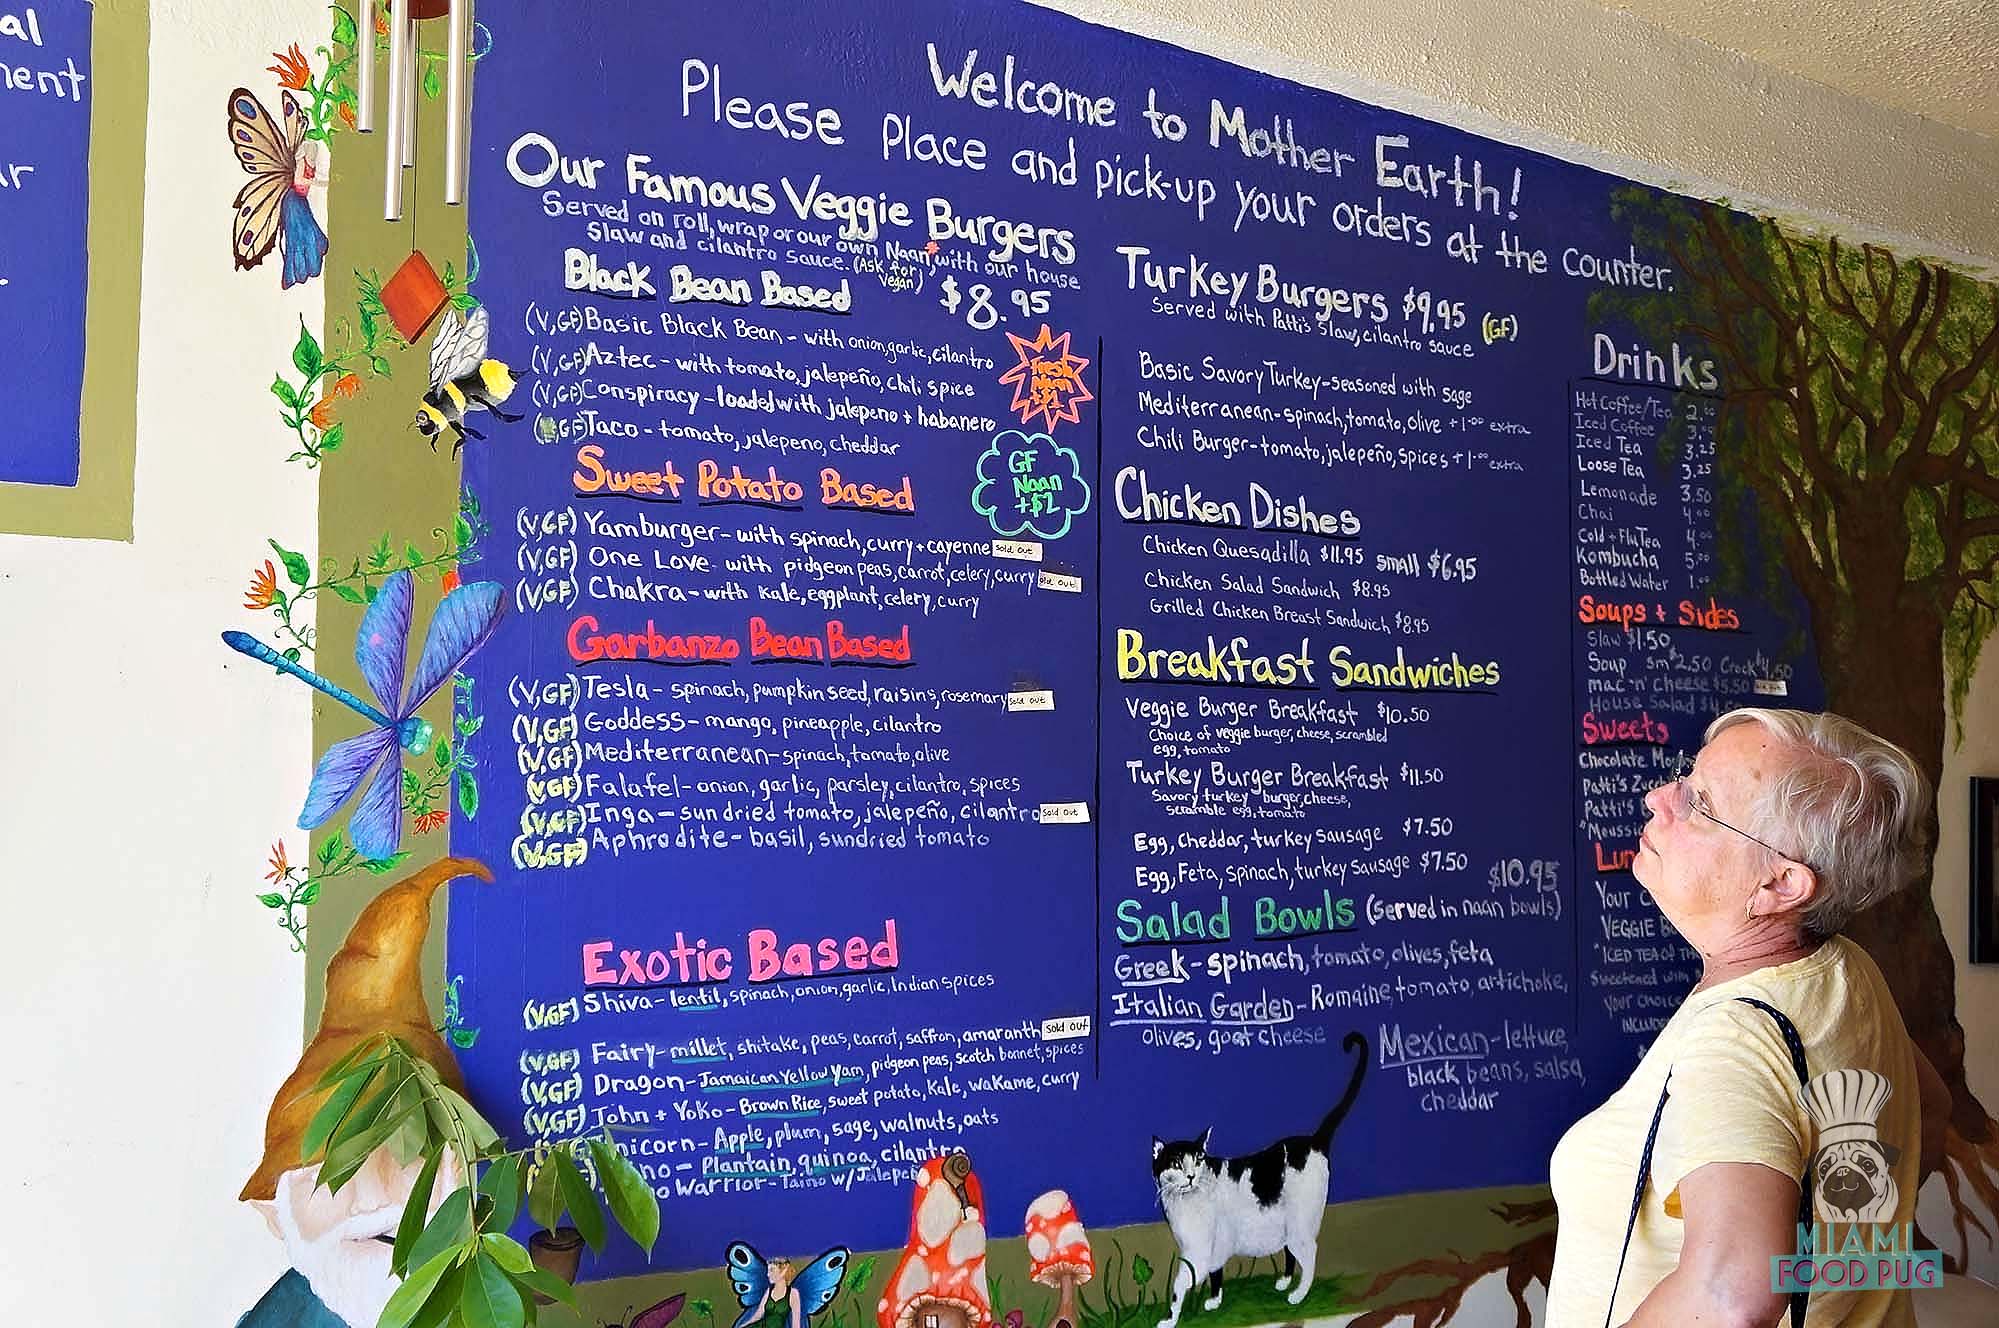 al
ment
ar
Welcome to Mother Earth!
Please Place and pick-up your orders at the counter.
Our Famous Veggie Burgers
Served on roll, wrap or our own Naan,* with our house
Slaw and cilantro sauce. (Ask for Vegan)
Black Bean Based $8.95
(V,GF) Basic Black Bean - with onion, garlic, cilantro
(V,GF) Aztec - with tomato, jalepeño, chili spice
(V,GF) Conspiracy - loaded with jalepeno + habanero
GF) Taco - tomato, jalepeno, cheddar
Fresh
Naan
+$1
GF
Naan
+$2
Sweet Potato Based
(V,GF) Yamburger - with spinach, curry + cayenne Sold Out
(V,GF) One Love - with pidgeon peas, carrot, celery, curry Sold Out
(V,GF) Chakra - with kale, eggplant, celery, curry
Garbanzo Bean Based
(V,GF) Tesla - spinach, pumpkin seed, raisins, rosemary Sold Out
(V,GF) Goddess - mango, pineapple, cilantro
(V,GF) Mediterranean - spinach, tomato, olive
(V,GF) Falafel - onion, garlic, parsley, cilantro, spices
(V,GF) Inga - sun dried tomato, jalepeño, cilantro Sold Out
(V,GF) Aphrodite - basil, sundried tomato
Exotic Based
(V,GF) Shiva - lentil, spinach, onion, garlic, Indian spices
(V,GF) Fairy - millet, shitake, peas, carrot, saffron, amaranth Sold Out
(V,GF) Dragon - Jamaican Yellow Yam, pidgeon peas, scotch bonnet, spices
(V,GF) John + Yoko - Brown Rice, sweet potato, kale, wakame, curry
nicorn - Apple, plum, sage, walnuts, oats
no - Plantain, quinoa, cilantro
o Warrior - Taino w/ Jalepe
Turkey Burgers $9.95 (GF)
Served with Patti's Slaw, cilantro sauce
Basic Savory Turkey - seasoned with sage
Mediterranean - spinach, tomato, olive +1.00 extra
Chili Burger - tomato, jalepeño, spices +1.00 extra
Chicken Dishes
Chicken Quesadilla $11.95 small $6.95
Chicken Salad Sandwich $8.95
Grilled Chicken Breast Sandwich $8.95
Breakfast Sandwiches
Veggie Burger Breakfast $10.50
Choice of veggie burger, cheese, scrambled
egg, tomato
Turkey Burger Breakfast $11.50
Savory turkey burger, cheese,
Scramble egg, tomato
Egg, Cheddar, turkey sausage $7.50
Egg, Feta, spinach, turkey Sausage $7.50
$10.95
Salad Bowls (served in naan bowls)
Greek - spinach, tomato, olives, feta
Italian Garden - Romaine, tomato, artichoke,
olives, goat cheese
Mexican - lettuce,
black beans, salsa,
cheddar
Drinks
Hot Coffee/Tea 2.00
Iced Coffee 3.
Iced Tea 3.25
Loose Tea 3.25
Lemonade 3.50
Chai 4.00
Cold + Flu Tea 4.00
Kombucha 5.00
Bottled Water 1.00
Soups + Sides
Slaw $1.50
Soup sm $2.50 Crock $4.50
mac 'n' cheese $5.50 Sold Out
House Salad $4.
Sweets
Chocolate Mo
Patti's Zucc
Patti's
"Moussi
Lun
Your C
VEGGIE Bu
"ICED TEA OF TH
Sweetened with
Your choice
INCLUD
MIAMI
FOOD PUG